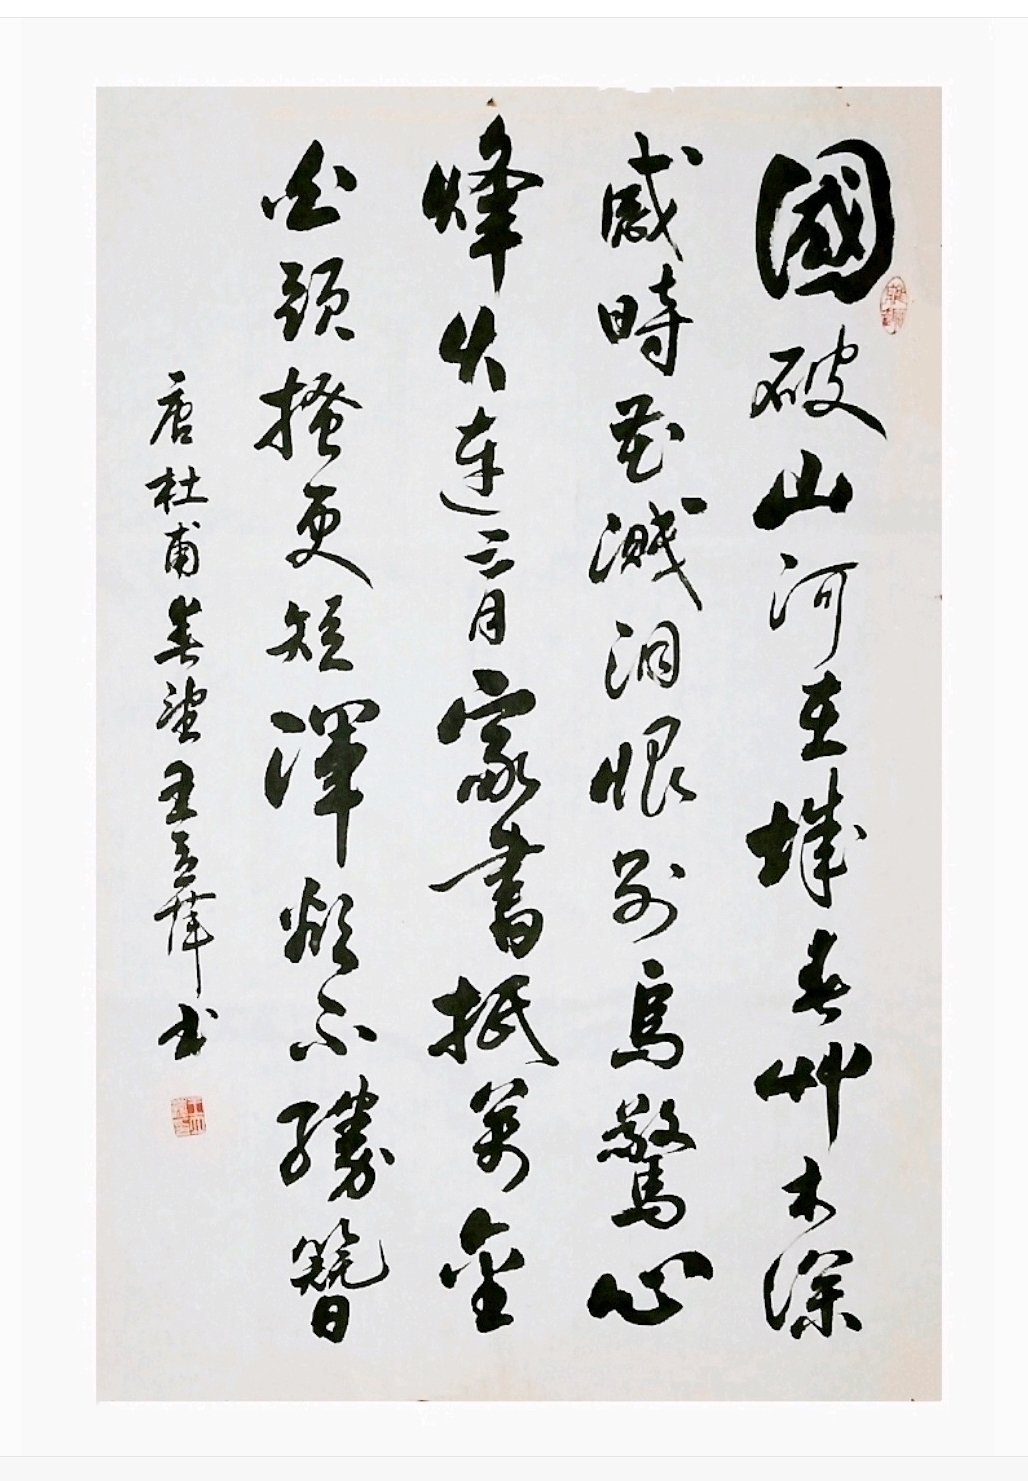 國破山河在城春艸木深
感時花濺泪恨別鳥驚心
烽火連三月家書抵萬金
白頭搔更短渾欲不勝簪
唐杜甫春望王书